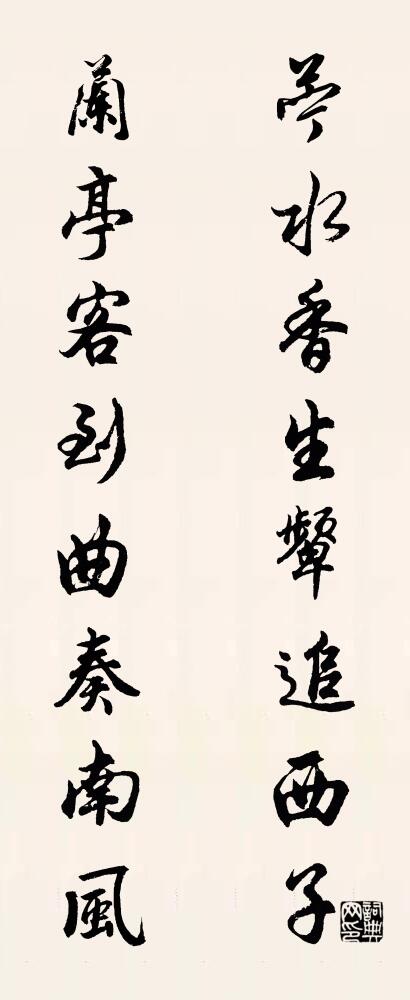 苧水香生顰追西子
蘭亭客到曲奏南風
詞典網印